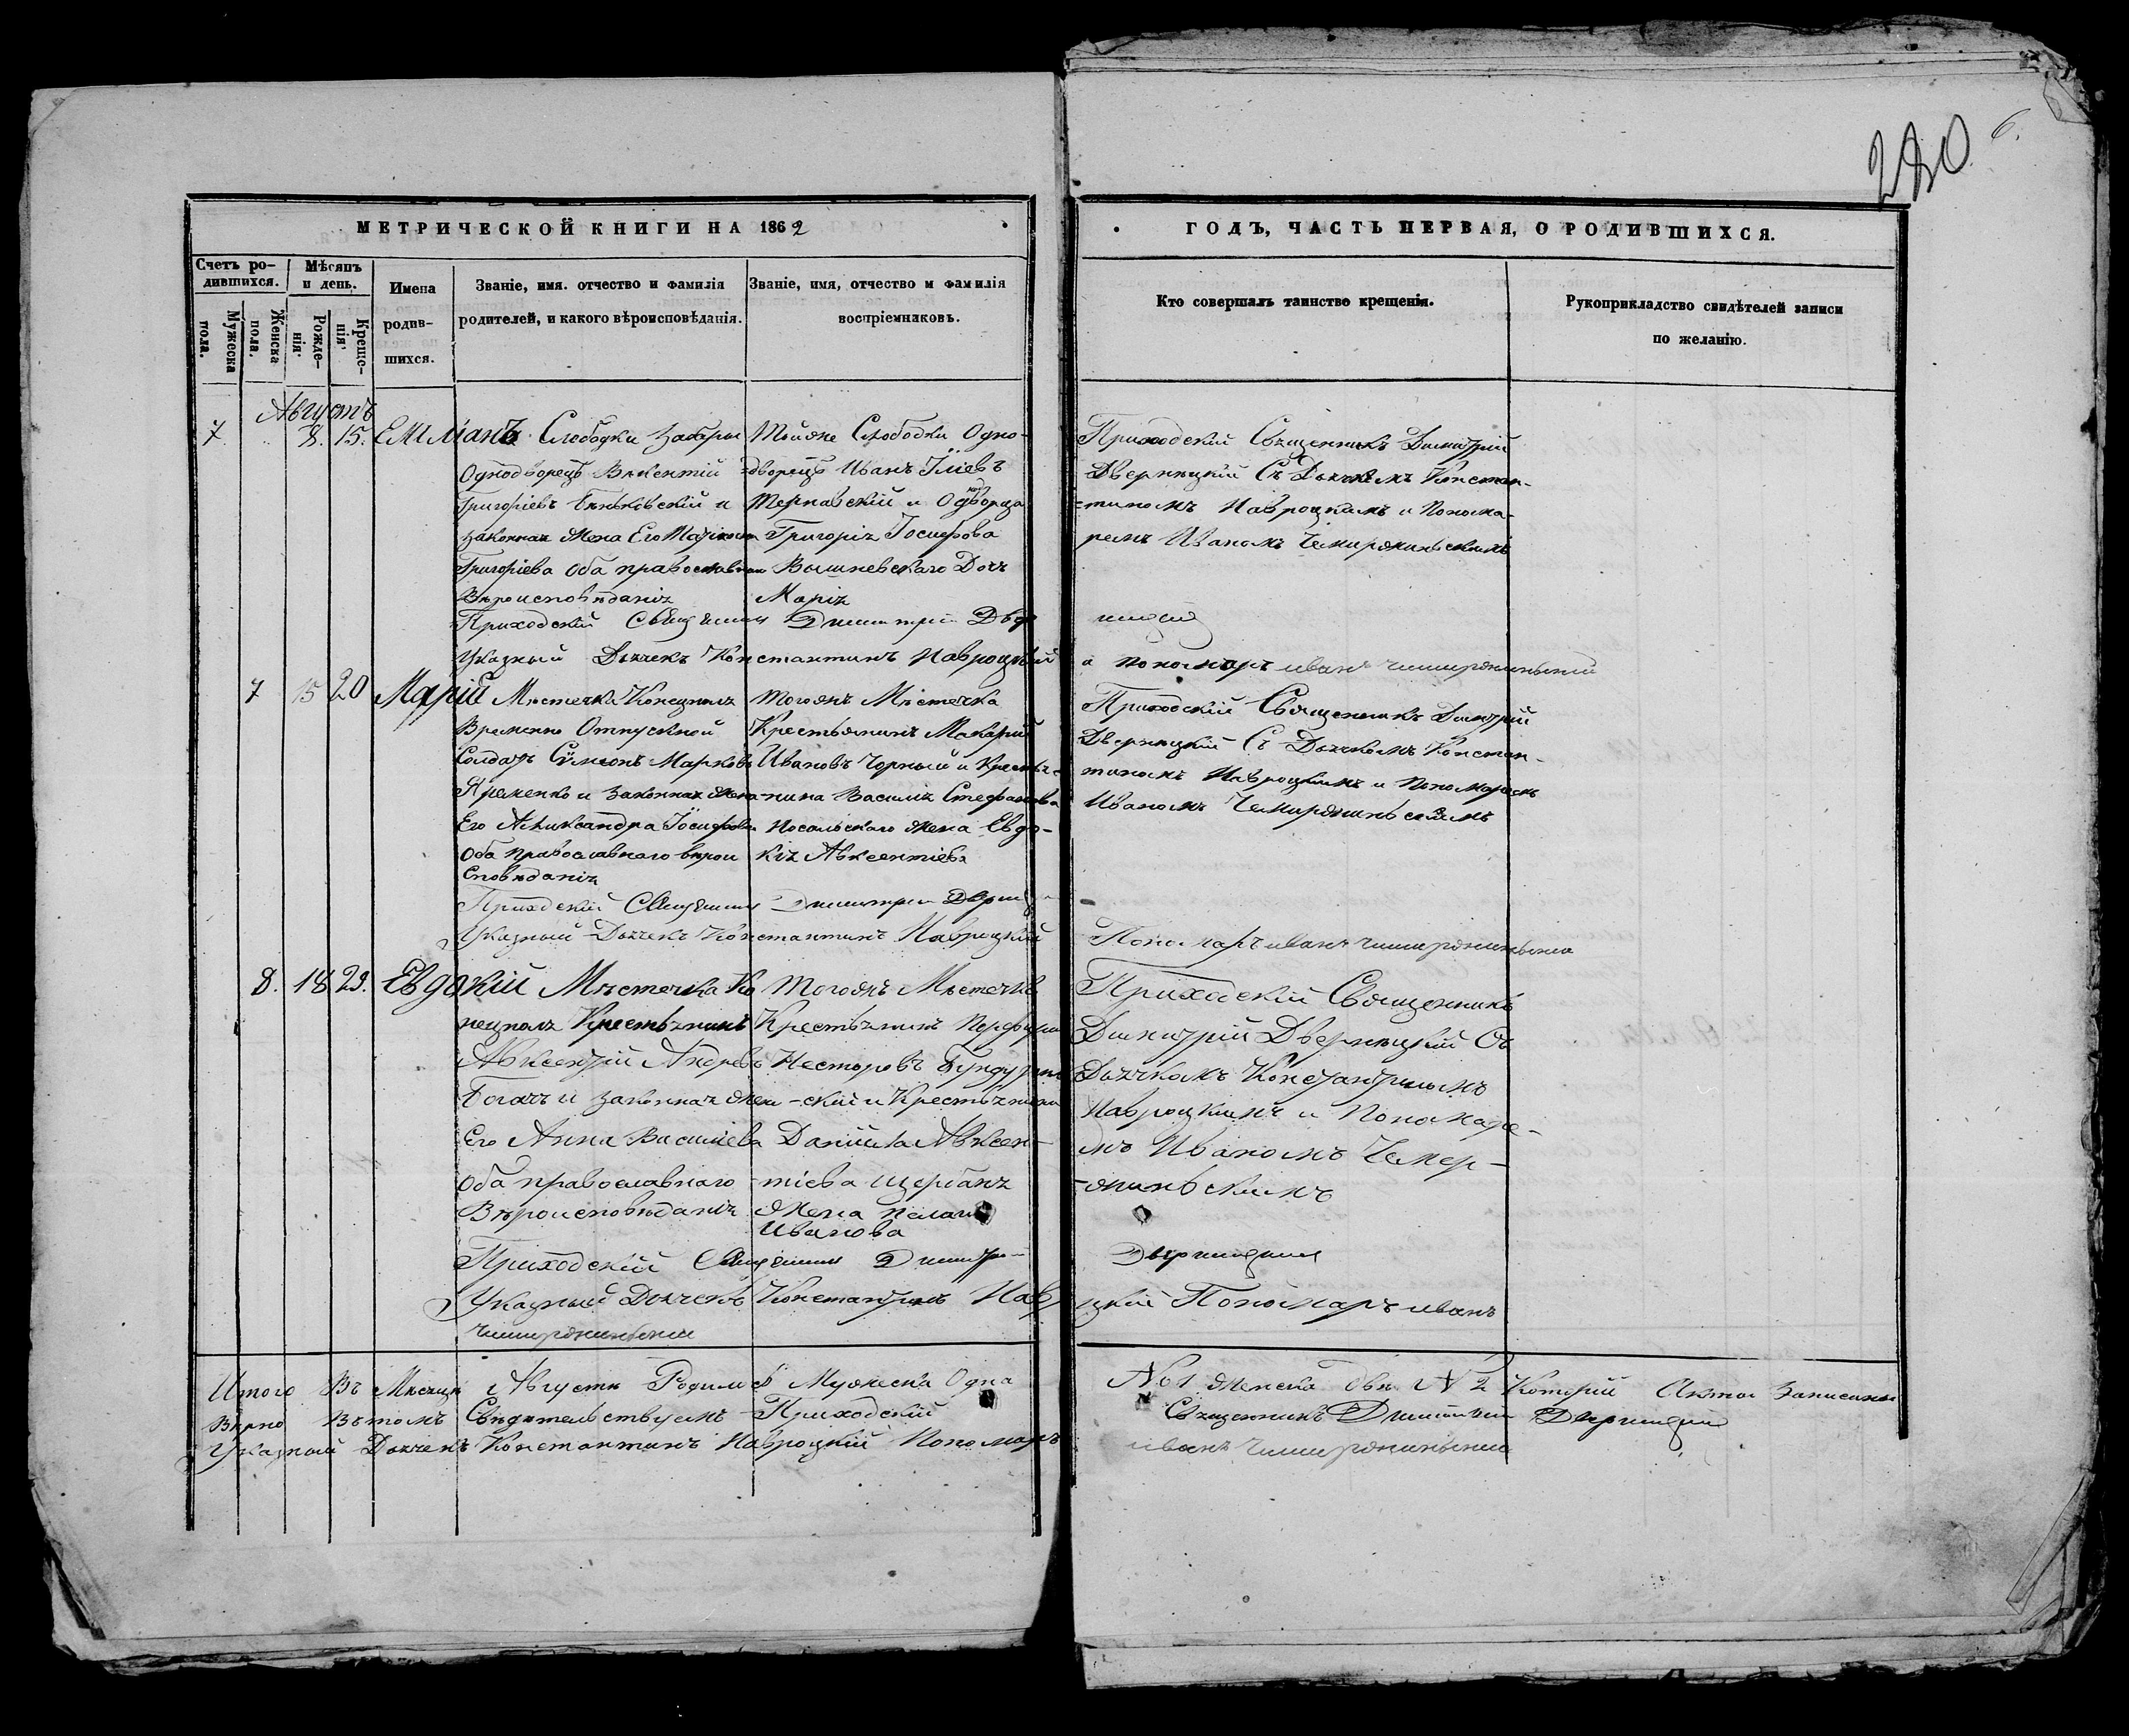 280 6.
МЕТРИЧЕСКОЙ КНИГИ НА 1862
ГОДЪ, ЧАСТЬ ПЕРВАЯ, О РОДИВШИХСЯ.
Счетъ ро-
дившихся.
Мужеска
пола.
Женска
пола.
Мѣсяцъ
и день.
Рожде-
нія
Креще-
нія
Имена
родив-
шихся.
Званіе, имя. отчество и фамилія
родителей, и какого вѣроисповѣданія.
Званіе, имя, отчество и фамилія
воспріемниковъ.
Кто совершалъ таинство крещенія.
Рукоприкладство свидѣтелей записи
по желанію.
Августъ
7 8. 15. Емліанъ
Слободки
Однодворецъ Викентій
Григоріевъ и
законная жена Его
Григоріева оба православнаго
Вѣроисповѣданія
Тойже Слободки Одно-
дворецъ Иванъ Иліевъ
Терновскій и Однодворца
Григорія Іосифова
Вышневскаго Дочь
Марія
Приходскій Священникъ Димитрій
Дверницкій Съ Дьячкомъ Констан-
тиномъ Навроцкимъ и Понома-
ремъ Иваномъ
Приходскій Священникъ Димитрій
Указный Дьячекъ Константинъ Навроцкій
Пономарь иванъ
7 15 20 Марія
Мѣстечка Конецполя
Временно Отпускной
Солдатъ Сѵмеонъ Марковъ
и законная жена
Его Александра Іосифова
Оба православнаго вѣрои
сповѣданія
Тогожъ Мѣстечка
Крестьянинъ Макарій
Ивановъ Чорный и Крестья-
нина Василія Стефанова
Носальскаго жена Евдо-
кія Авксентіева
Приходскій Священникъ Димитрій
Дверницкій Съ Дьячкомъ Констан-
тиномъ Навроцкимъ и Пономаремъ
Иваномъ
Приходскій Священникъ Димитрій
Указный Дьячекъ Константинъ Навроцкій
Пономарь иванъ
8. 18 23. Евдокій
Мѣстечка Ко
нецполя Крестьянинъ
Авксентій Андреевъ
Богачъ и законная жена
Его Анна Василіева
Оба православнаго
Вѣроисповѣданія
Тогожъ Мѣстечка
Крестьянинъ
Несторовъ
-скій и Крестьянина
Даніила Авксен-
тіева Щербаня
жена
Иванова
Приходскій Священникъ
Димитрій Дверницкій Съ
Дьячкомъ Константиномъ
Навроцкимъ и Пономаре-
мъ Иваномъ
Приходскій Священникъ Димитрій
Указный Дьячекъ Константинъ Навроцкій Пономарь иванъ
Итого Въ Мѣсяцѣ Августѣ Родилось Мужеска Одна № 1 женска двѣ № 2 Записаны
Вѣрно Въ томъ Свидѣтельствуемъ Приходскій Священникъ Димитрій
Указный Дьячекъ Константинъ Навроцкій Пономарь иванъ